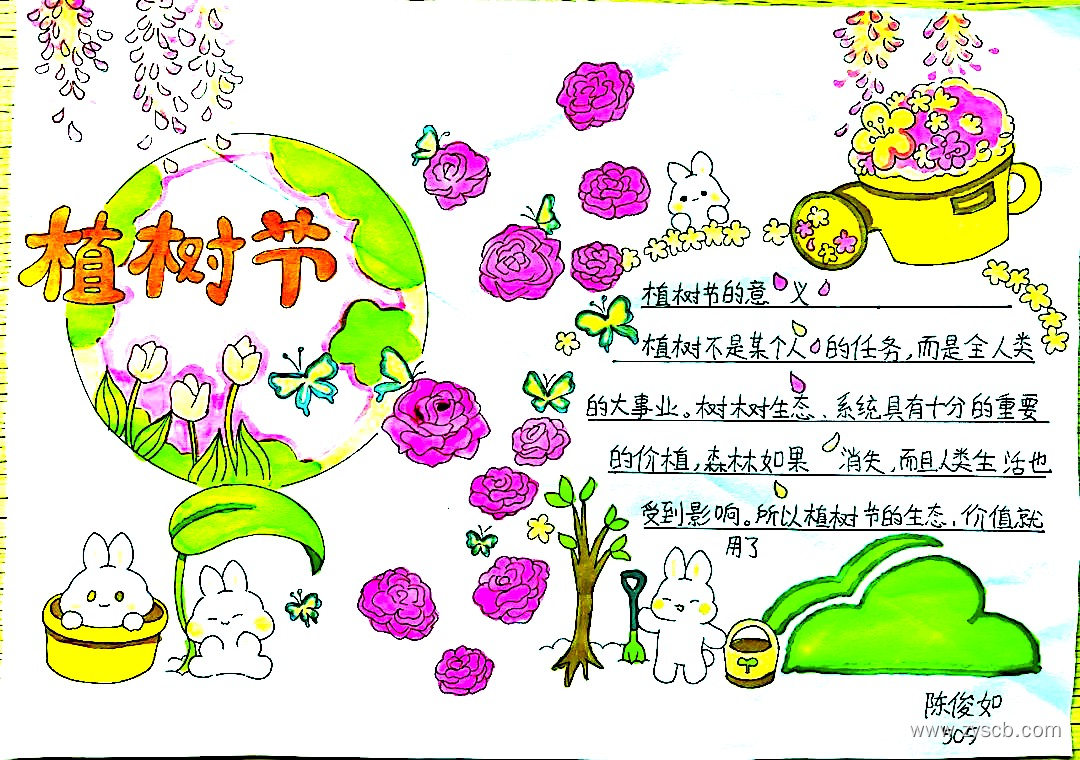 植树节
植树节的意义
植树不是某个人的任务,而是全人类
的大事业。树木对生态、系统具有十分的重要
的价植,森林如果 消失,而且人类生活也
受到影响。所以植树节的生态,价值就
用了
陈俊如
305
www.zyscb.com